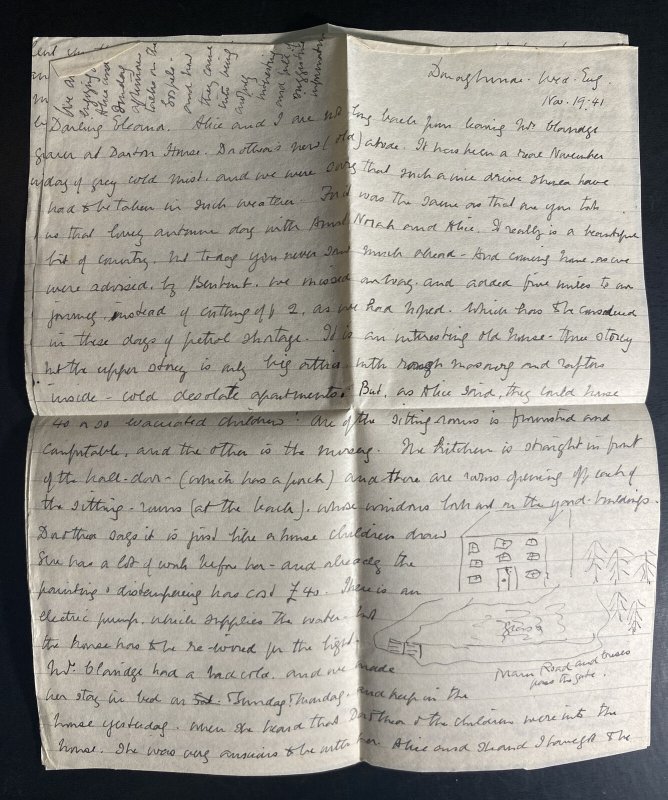 We are
enjoying
Alice and
Sunday
afternoon
talks on the
Gospels -
and how
they came
into being
and very
interesting
and full of
suggestive
information
Donaghmore. Wed. Evg.
Nov. 19. 41
Darling Eleanor. Alice and I are not long back from leaving Mrs Claridge
Grover at Darton House. Dorothea's new (old) abode. It has been a real November
day of grey cold mist. and we were sorry that such a nice drive should have
had to be taken in such weather. For it was the same as that one you took
us that lovely autumn day with Aunt Norah and Alice. It really is a beautiful
bit of country. but today you never saw much ahead - And coming home, as we
were advised, by Bentbut, we missed our way. and added five miles to our
journey, instead of cutting off 2, as we had hoped. Which has to be considered
in these days of petrol shortage. It is an interesting old house - three storey
but the upper storey is only big attics, with rough masonry and rafters
inside - cold desolate apartments. But, as Alice said, they could house
40 or so evacuated children! One of the sitting rooms is furnished and
comfortable, and the other is the nursery. The kitchen is straight in front
of the hall-door - (which has a porch) and there are rooms opening off each of
the sitting-rooms (at the back). whose windows look out on the yard-buildings.
Dorothea says it is just like a house children draw
She has a lot of work before her - and already the
painting & distempering has cost £40. There is an
electric pump, which supplies the water - but
the house has to be re-wired for the light -
Grass
Main Road and buses
pass the gate.
Mrs. Claridge had a bad cold, and we made
her stay in bed on Sunday & Monday, and keep in the
house yesterday. When she heard that Dorothea & the children were into the
house. She was very anxious to be with her. Alice and I brought the